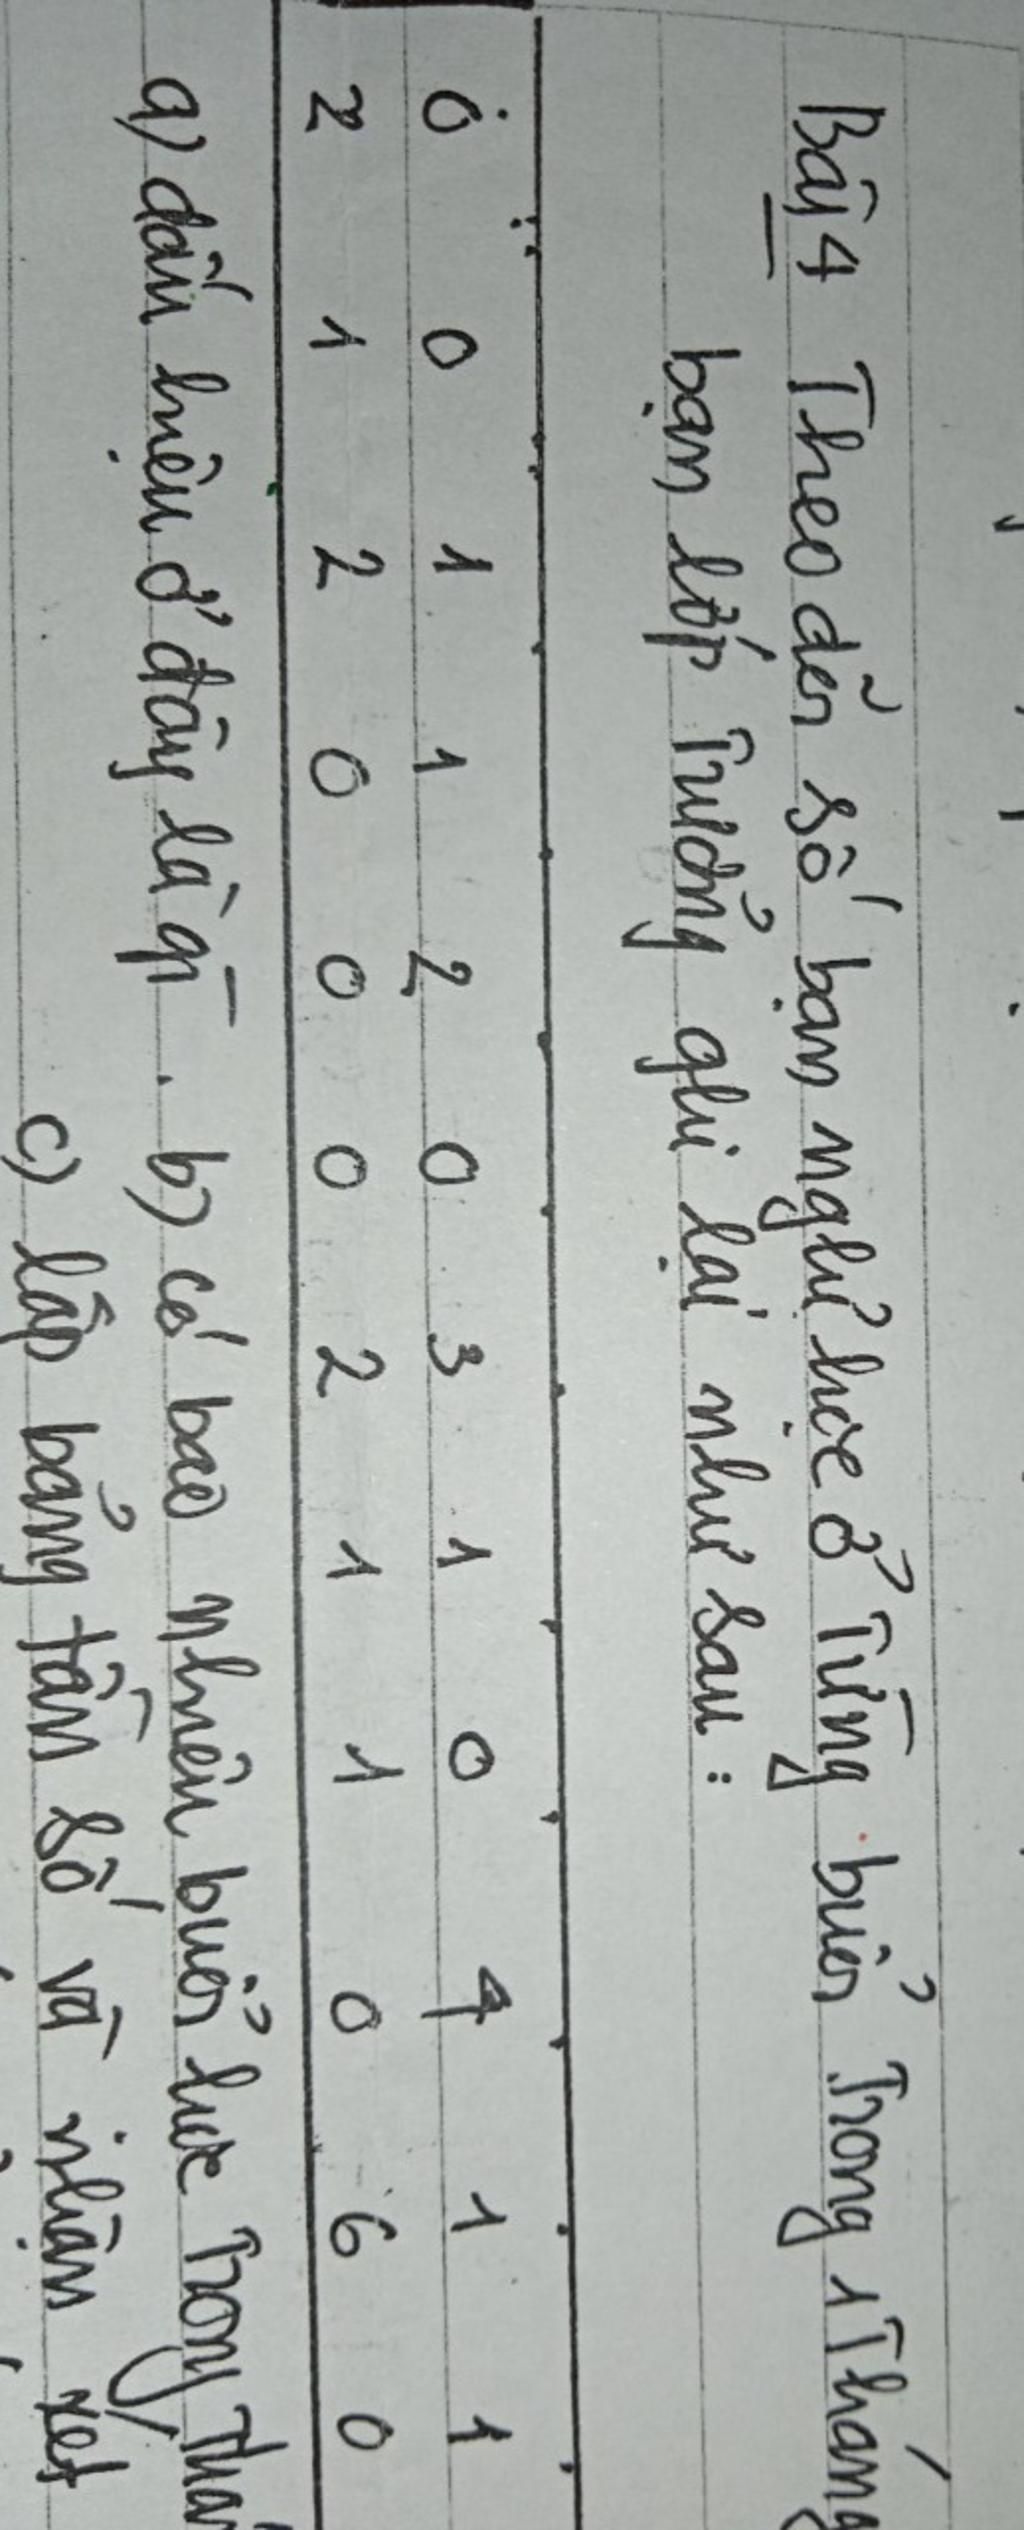 Bài 4 Theo dõi số bạn nghỉ học ở từng buổi trong 1 tháng
bạn lớp trưởng ghi lại như sau:
0 0 1 1 2 0 3 1 0 4 1 1
2 1 2 0 0 0 2 1 1 0 6 0
a) dấu hiệu ở đây là gì. b) có bao nhiêu buổi học trong
c) lập bảng tần số và nhận xét